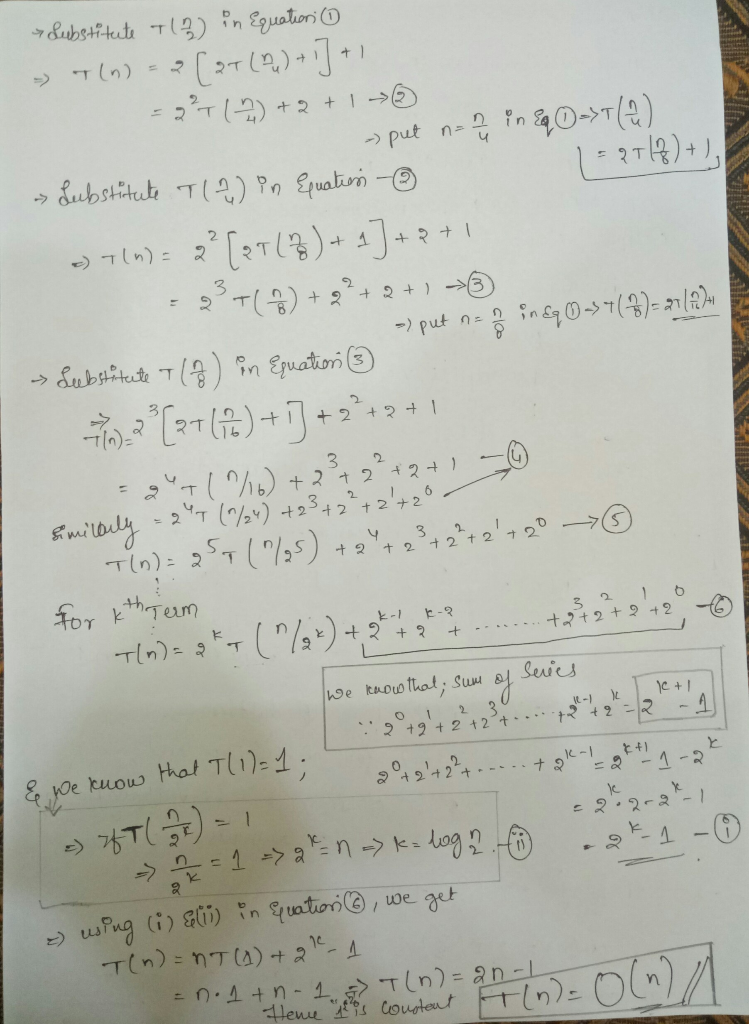 → Substitute T(n/2) in Equation ①
⇒ T(n) = 2[2T(n/4)+1]+1
= 2²T(n/4) + 2 + 1 → ②
⇒ put n = n/4 in Eq ① ⇒ T(n/4)
= 2T(n/8) + 1
→ Substitute T(n/4) in Equation – ②
⇒ T(n) = 2²[2T(n/8) + 1] + 2 + 1
= 2³T(n/8) + 2² + 2 + 1 → ③
⇒ put n = n/8 in Eq ① → T(n/8) = 2T(n/16)+1
→ Substitute T(n/8) in Equation ③
⇒ T(n) = 2³[2T(n/16) + 1] + 2² + 2 + 1
= 2⁴T(n/16) + 2³ + 2² + 2 + 1 – ④
= 2⁴T(n/2⁴) + 2³ + 2² + 2¹ + 2⁰
Similarly
T(n) = 2⁵T(n/2⁵) + 2⁴ + 2³ + 2² + 2¹ + 2⁰ → ⑤
For kth Term
T(n) = 2ᵏT(n/2ᵏ) + 2ᵏ⁻¹ + 2ᵏ⁻² + ........ + 2³ + 2² + 2¹ + 2⁰ – ⑥
We know that; sum of Series
∵ 2⁰ + 2¹ + 2² + 2³ + ...... + 2ᵏ⁻¹ + 2ᵏ = 2ᵏ⁺¹ – 1
& we know that T(1) = 1;
2⁰ + 2¹ + 2² + ...... + 2ᵏ⁻¹ = 2ᵏ⁺¹ – 1 – 2ᵏ
= 2ᵏ·2 – 2ᵏ – 1
= 2ᵏ – 1 – ⓘ
⇒ If T(n/2ᵏ) = 1
⇒ n/2ᵏ = 1 ⇒ 2ᵏ = n ⇒ k = log₂n – (ii)
⇒ using (i) & (ii) in Equation ⑥, we get
T(n) = nT(1) + 2ᵏ – 1
= n·1 + n – 1 ⇒ T(n) = 2n – 1
Hence "1" is constant
T(n) = O(n) //